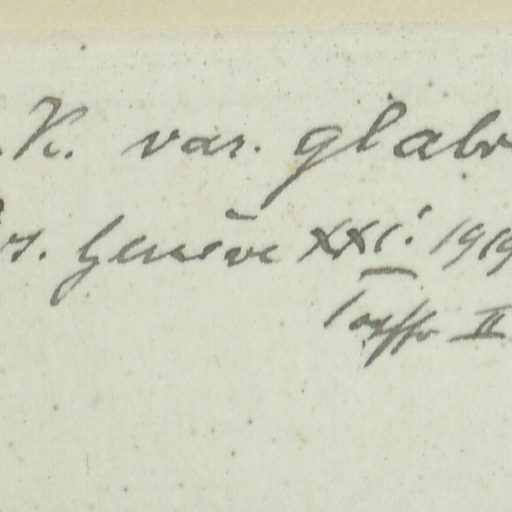 K. var. glabr
rs. Genève XXI. 1919
II